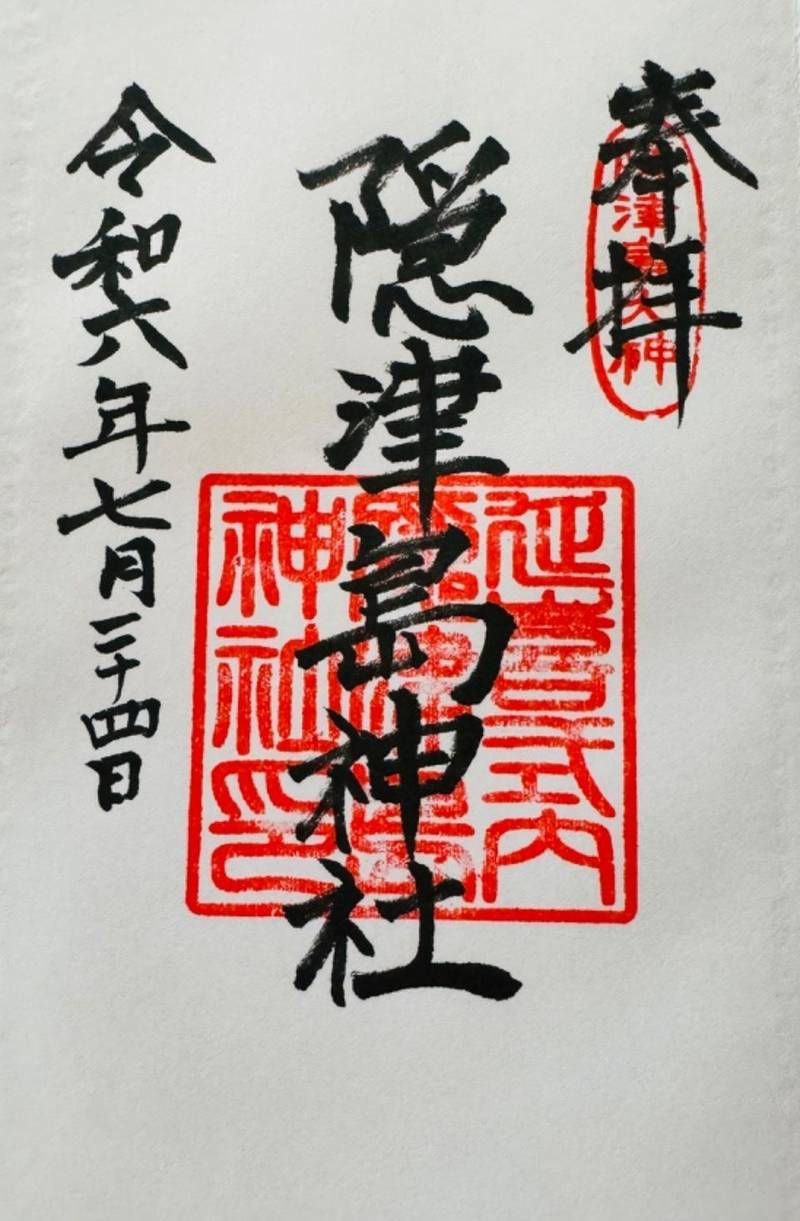 奉拝
津島大神
隠津島神社
延喜式内
神社印
令和六年七月二十四日